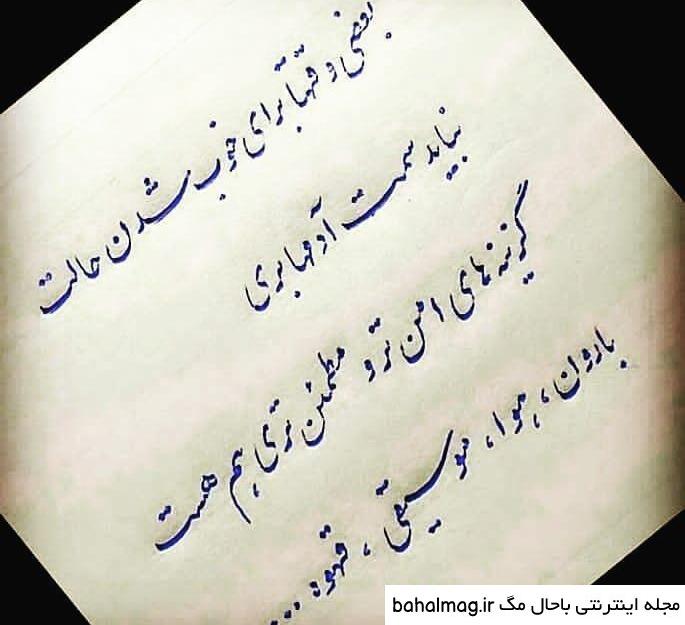 بعضی وقتها برای خوب شدن حالت
نباید سمت آدمها بری
گزینه‌های امن تر و مطمئن تری هم هست
بارون، هوا، موسیقی، قهوه ...
مجله اینترنتی باحال مگ bahalmag.ir